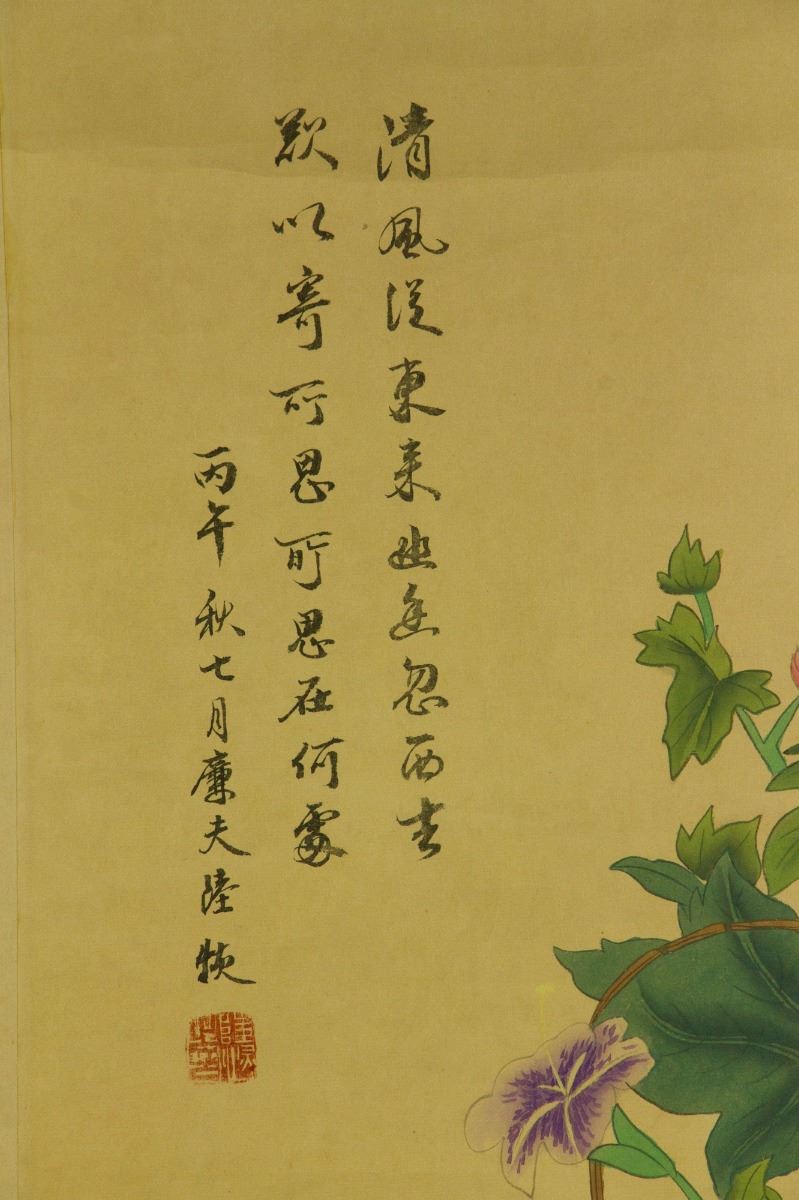 清風從東來忽西去
欲以寄所思所思在何處
丙午秋七月廉夫陸恢